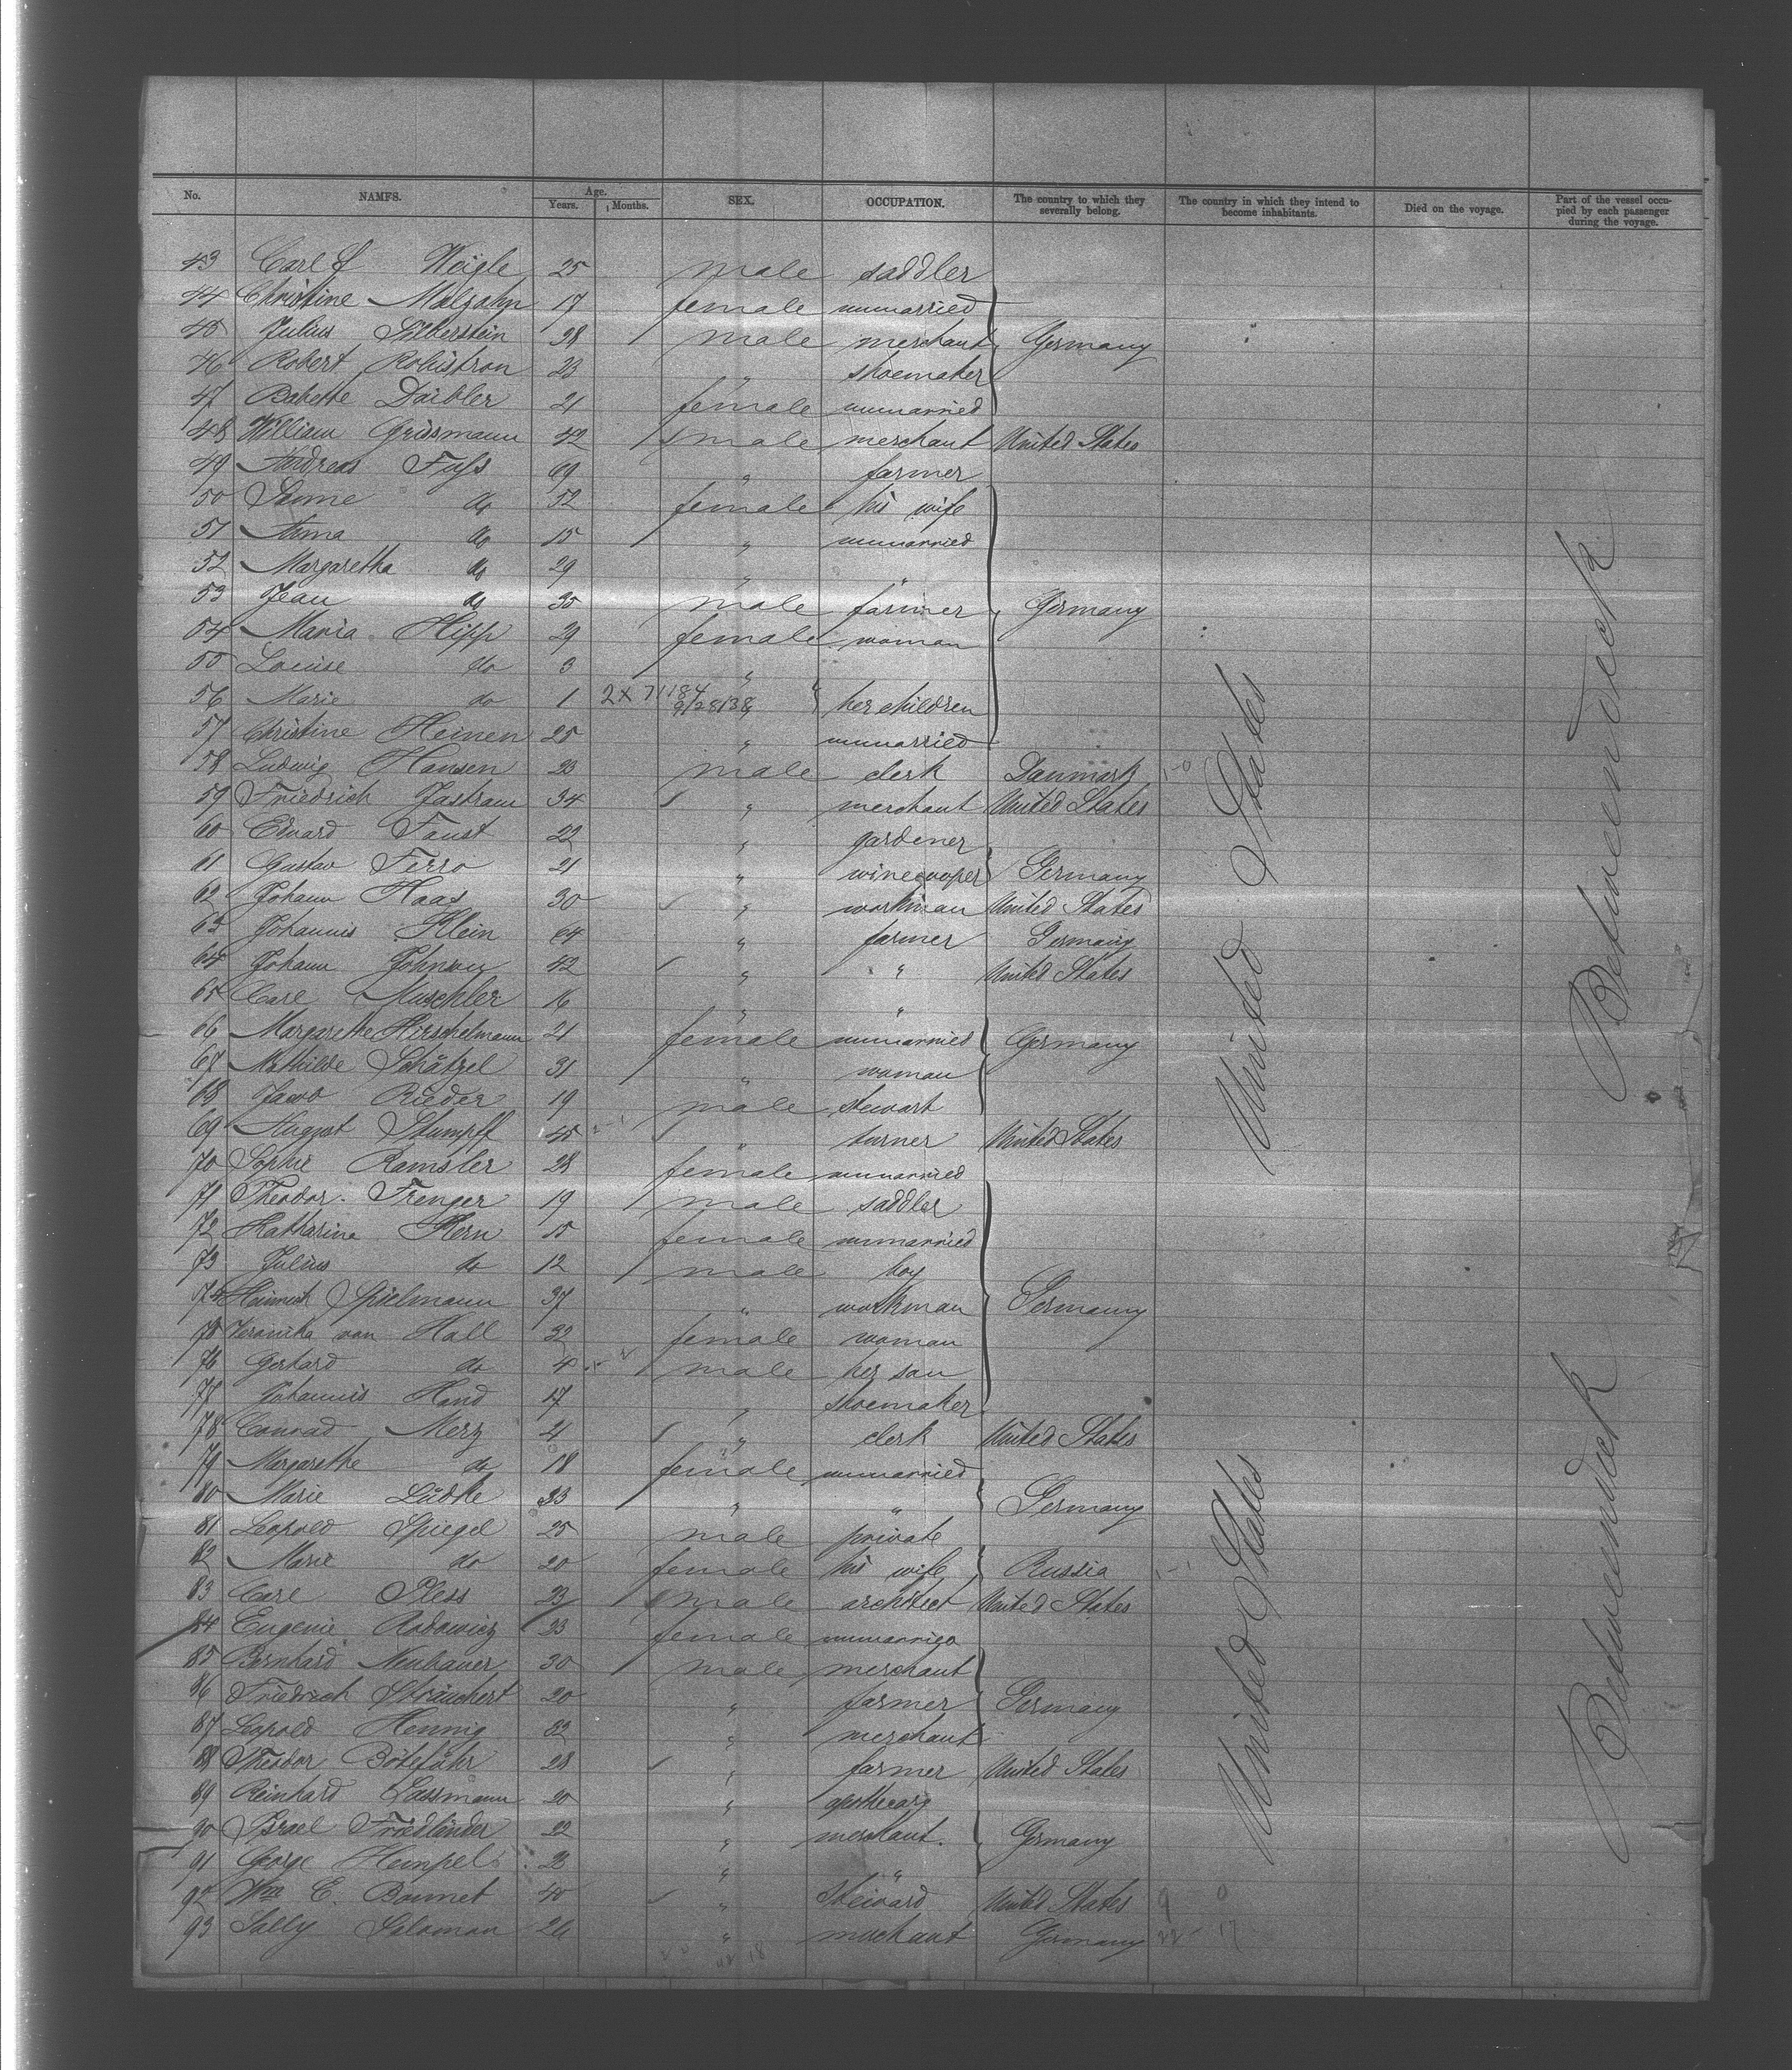 No. NAMES. Age. Years. Months. SEX. OCCUPATION. The country to which they severally belong. The country in which they intend to become inhabitants. Died on the voyage. Part of the vessel occupied by each passenger during the voyage.
43 Carl Weigle 25 male saddler
44 Christine Malzahn 17 female unmarried
45 Julius Silberstein 38 male merchant Germany
46 Robert 23 " shoemaker
47 Babette Däibler 21 female unmarried
48 William Geissmann 42 male merchant United States
49 Andreas Fuss 69 " farmer
50 do 52 female his wife
51 Anna do 15 " unmarried
52 Margaretha do 29 " "
53 Jean do 35 male farmer Germany
54 Maria Hipp 29 female woman
55 Louise do 3 "
56 Marie do 1 2x 71184 9/28/38 " her children
57 Christine Heinen 25 " unmarried
58 Ludwig Hansen 23 male clerk Danmark
59 Friedrich Jastram 34 " merchant United States
60 Eduard Faust 22 " gardener
61 Gustav Ferro 21 " winecooper Germany
62 Johann Haas 30 " workman United States
63 Johannis Klein 64 " farmer Germany
64 Johann 42 " " United States
65 Carl Muschler 16 " "
66 Margarethe Hirschelmann 21 female unmarried Germany
67 Mathilde Schätzel 31 " woman
68 Jacob Rieder 19 male stewart
69 August Stumpff 45 " turner United States
70 Sophie Ramsler 28 female unmarried
71 Theodor Frenger 19 male saddler
72 Katharina Kern 15 female unmarried
73 Julius do 12 male boy
74 Heinrich Spielmann 37 " workman Germany
75 Veronika van Hall 32 female woman
76 Gerhard do 4 male her son
77 Johannis Hand 17 " shoemaker
78 Conrad Merz 21 " clerk United States
79 Margarethe do 18 female unmarried
80 Marie Lüdke 33 " " Germany
81 Leopold Spiegel 25 male private
82 Marie do 20 female his wife Russia
83 Carl Pless 23 male architect United States
84 Eugenie Radowicz 23 female unmarried
85 Bernhard Neubauer 30 male merchant
86 Friedrich Sträuchert 20 " farmer Germany
87 Leopold Hennig 32 " merchant
88 Theodor Böteführ 28 " farmer United States
89 Reinhard Lassmann 20 " apothecary
90 Israel Friedländer 22 " merchant. Germany
91 George Hempel 23 " "
92 Wm E. Bonnet 40 " Steward United States 9 0
93 Sally Salomon 26 " merchant Germany 22 17
United States
United States
Betweendeck
Betweendeck